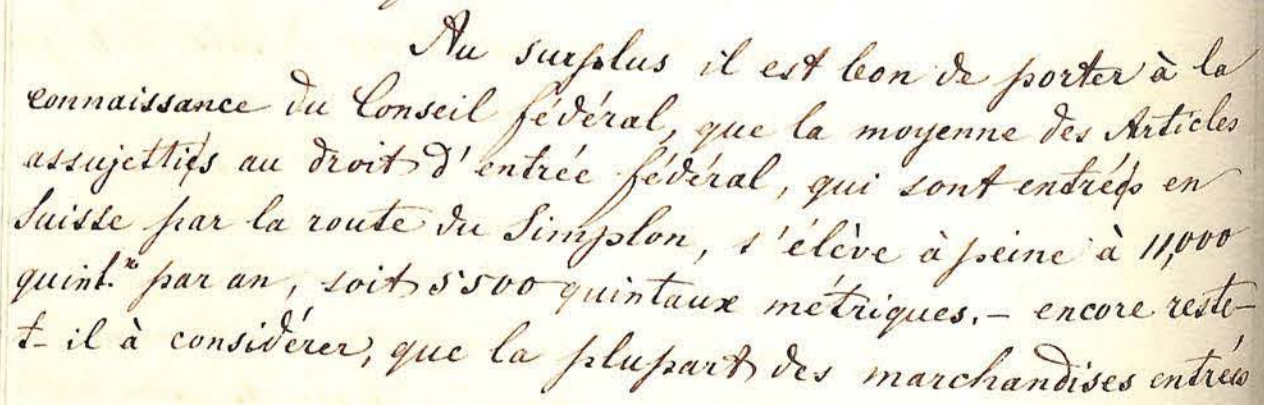 Au surplus il est bon de porter à la
connaissance du Conseil fédéral, que la moyenne des Articles
assujettis au droit d'entrée fédéral, qui sont entrés en
Suisse par la route du Simplon, s'élève à peine à 11,000
quint.x par an, soit 5500 quintaux métriques. – encore reste-
t-il à considérer, que la plupart des marchandises entrées